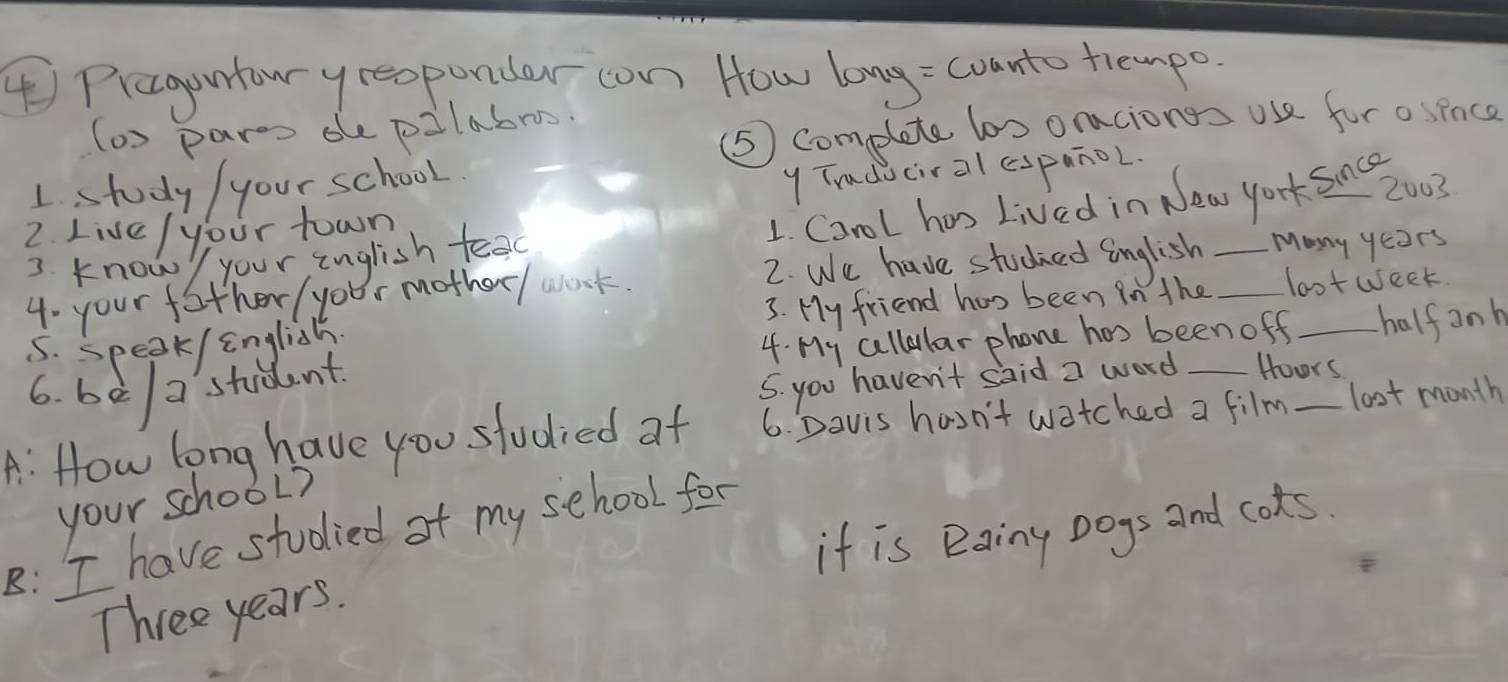 ④ Preguntar y responder con How long = cuanto tiempo.
los pares de palabras.
1. study / your school.
2. Live / your town
3. know / your English teac
4. your father / your mother / work.
5. speak / English.
6. be / a student.
A: How long have you studied at
your school?
B: I have studied at my school for
Three years.
⑤ Complete las oraciones use for o since
y Traducir al español.
1. Carol has Lived in New york since 2003.
2. We have studied English __ Many years
3. My friend has been in the __ last week.
4. My cellular phone has been off __ half an h
5. you haven't said a word __ Hours
6. Davis hasn't watched a film __ last month
it is Rainy Dogs and cats.